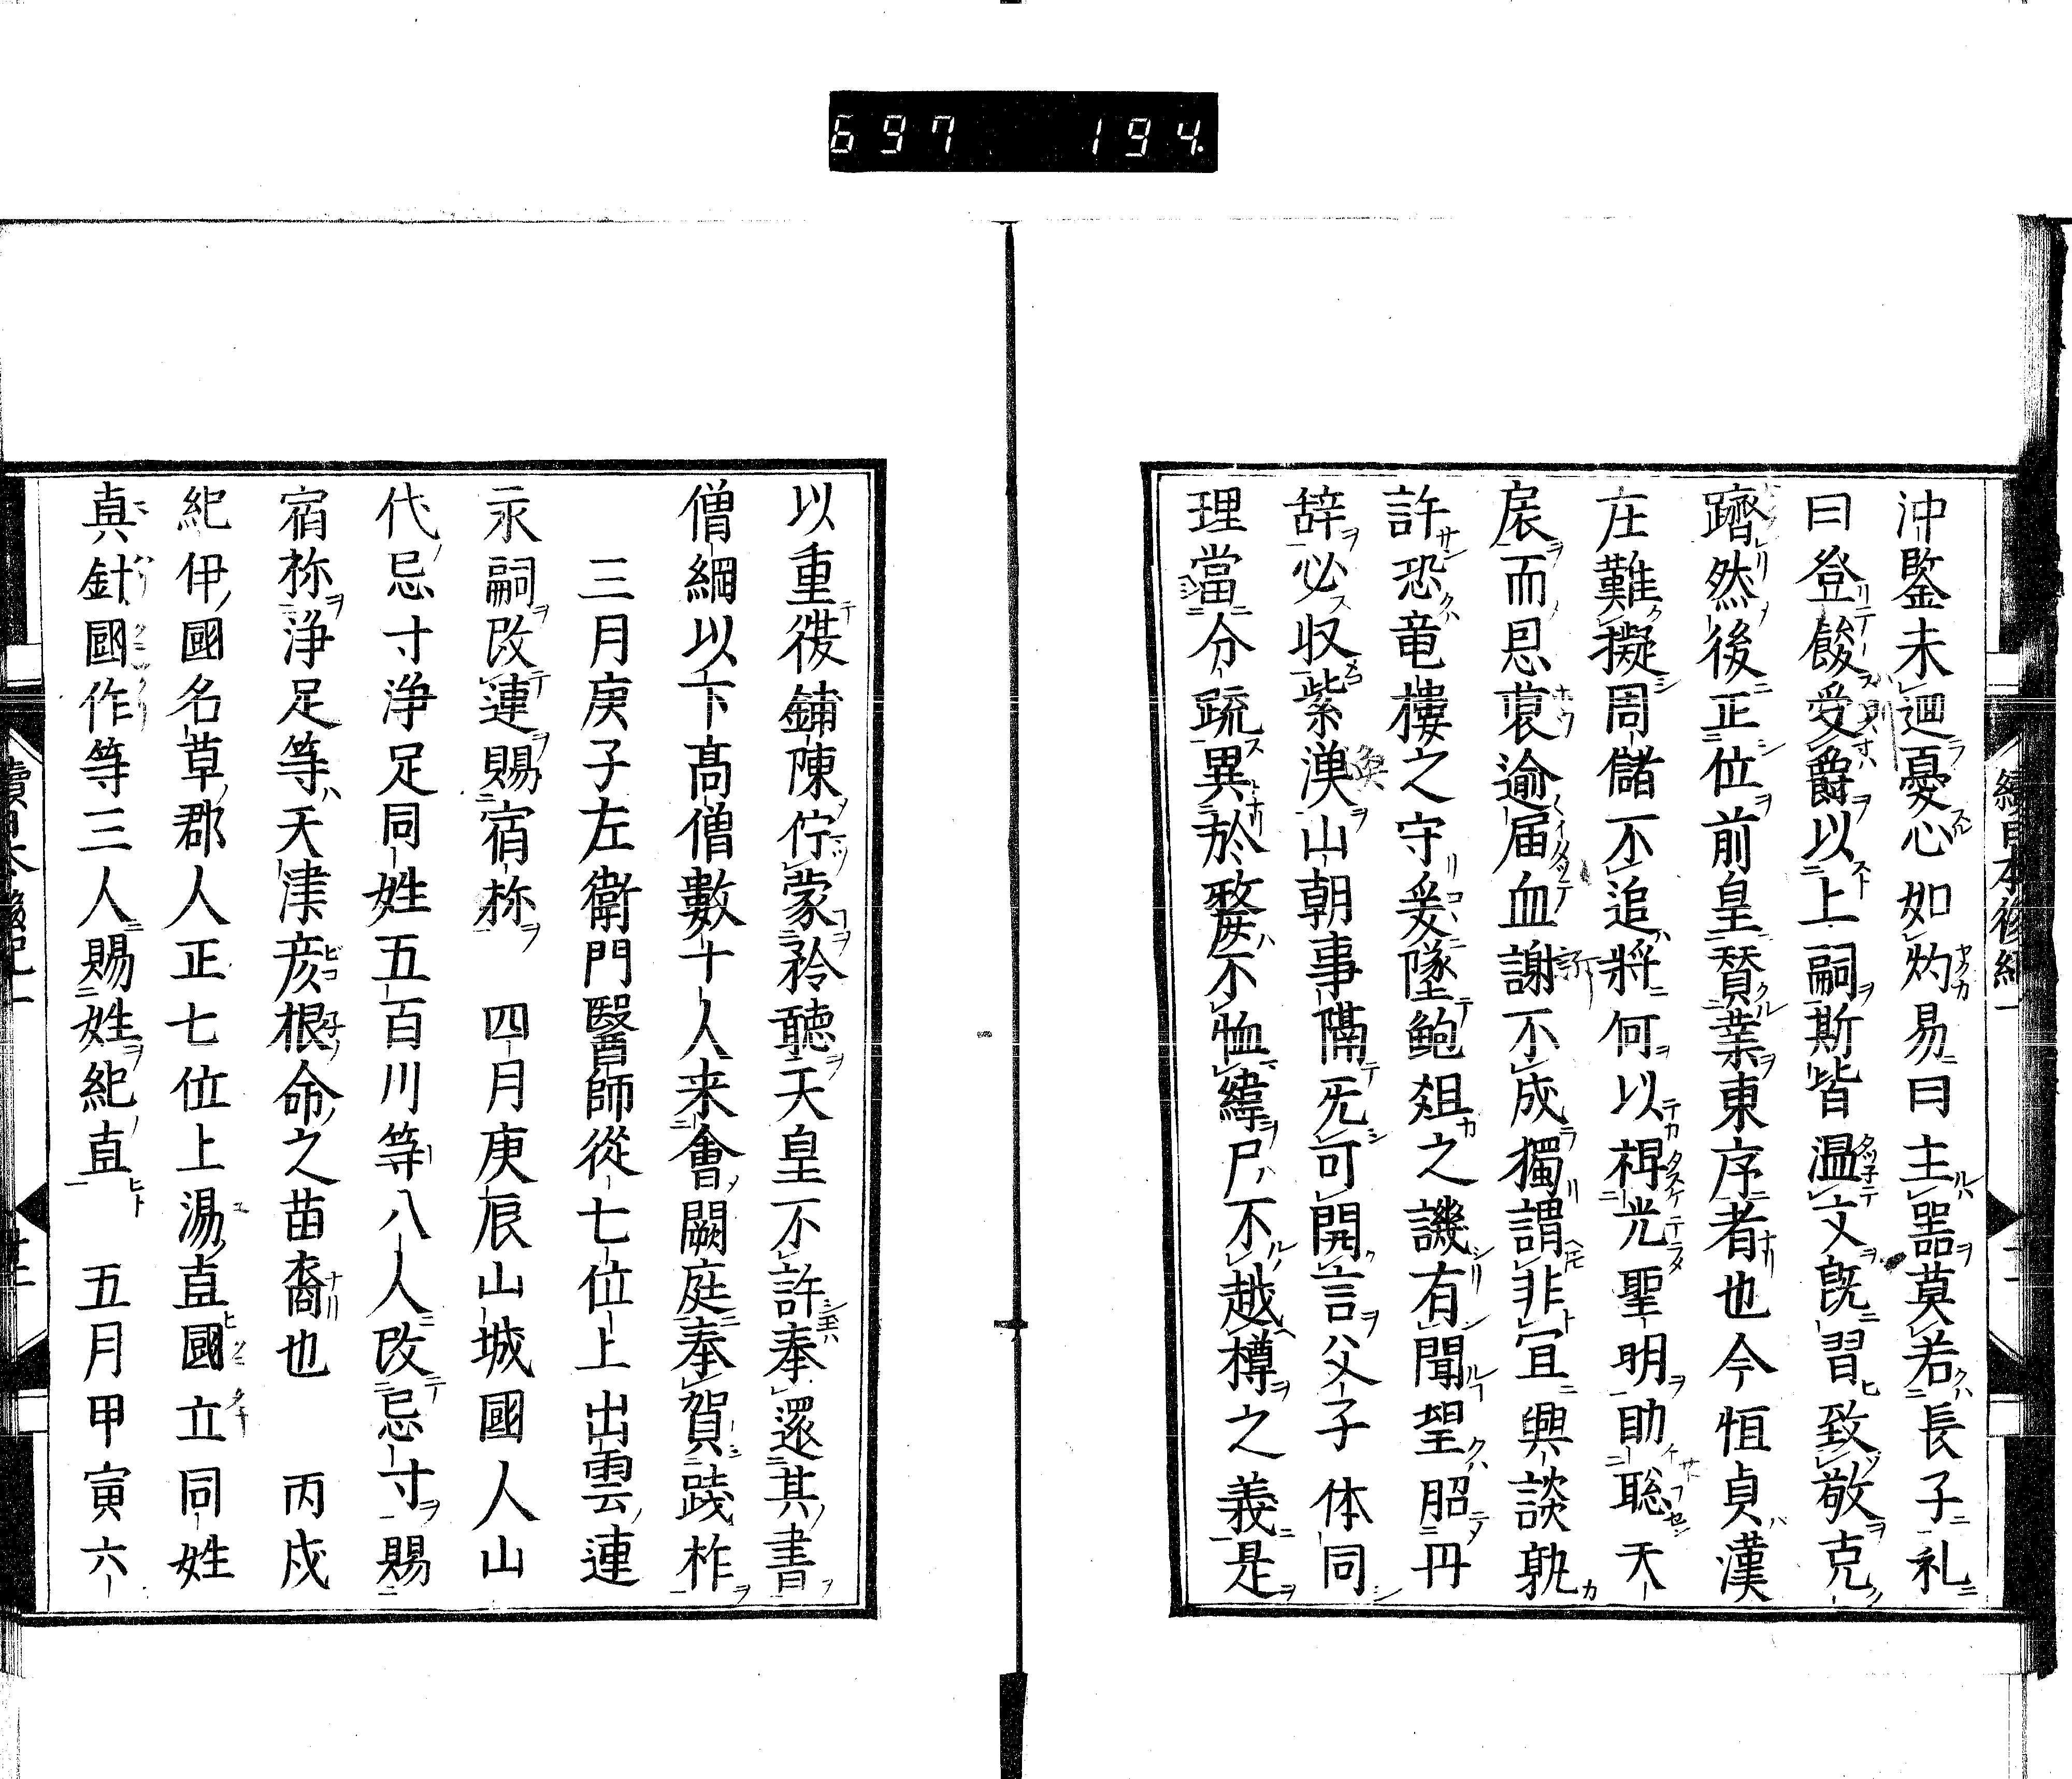 697 194.
續日本後紀一
沖鍳未廻憂心如灼易曰主噐莫若長子礼
曰登餕受爵以上嗣斯皆温文旣習致敬克
躋然後正位前皇賛業東序者也今恒貞漢
庄難擬周儲不追將何以裨光聖明助聡天
扆而忌襃逾届血謝不成獨謂非冝興談孰
許恐竜樓之守爰墜鲍俎之譏有聞望昭丹
辞必収紫渙山朝事隔旡可開言父子体同
理當分疏異於嫠不恤緯尸不越樽之義是
以重祓鋪陳佇蒙矜聽天皇不許奉還其書
僧綱以下髙僧數十人来會闕庭奉賀践柞
三月庚子左衛門醫師從七位上出雲連
永嗣改連賜宿祢 四月庚辰山城國人山
代忌寸浄足同姓五百川等八人改忌寸賜
宿祢浄足等天津彦根命之苗裔也 丙戍
紀伊國名草郡人正七位上湯直國立同姓
真針國作等三人賜姓紀直 五月甲寅六
續日本後紀一